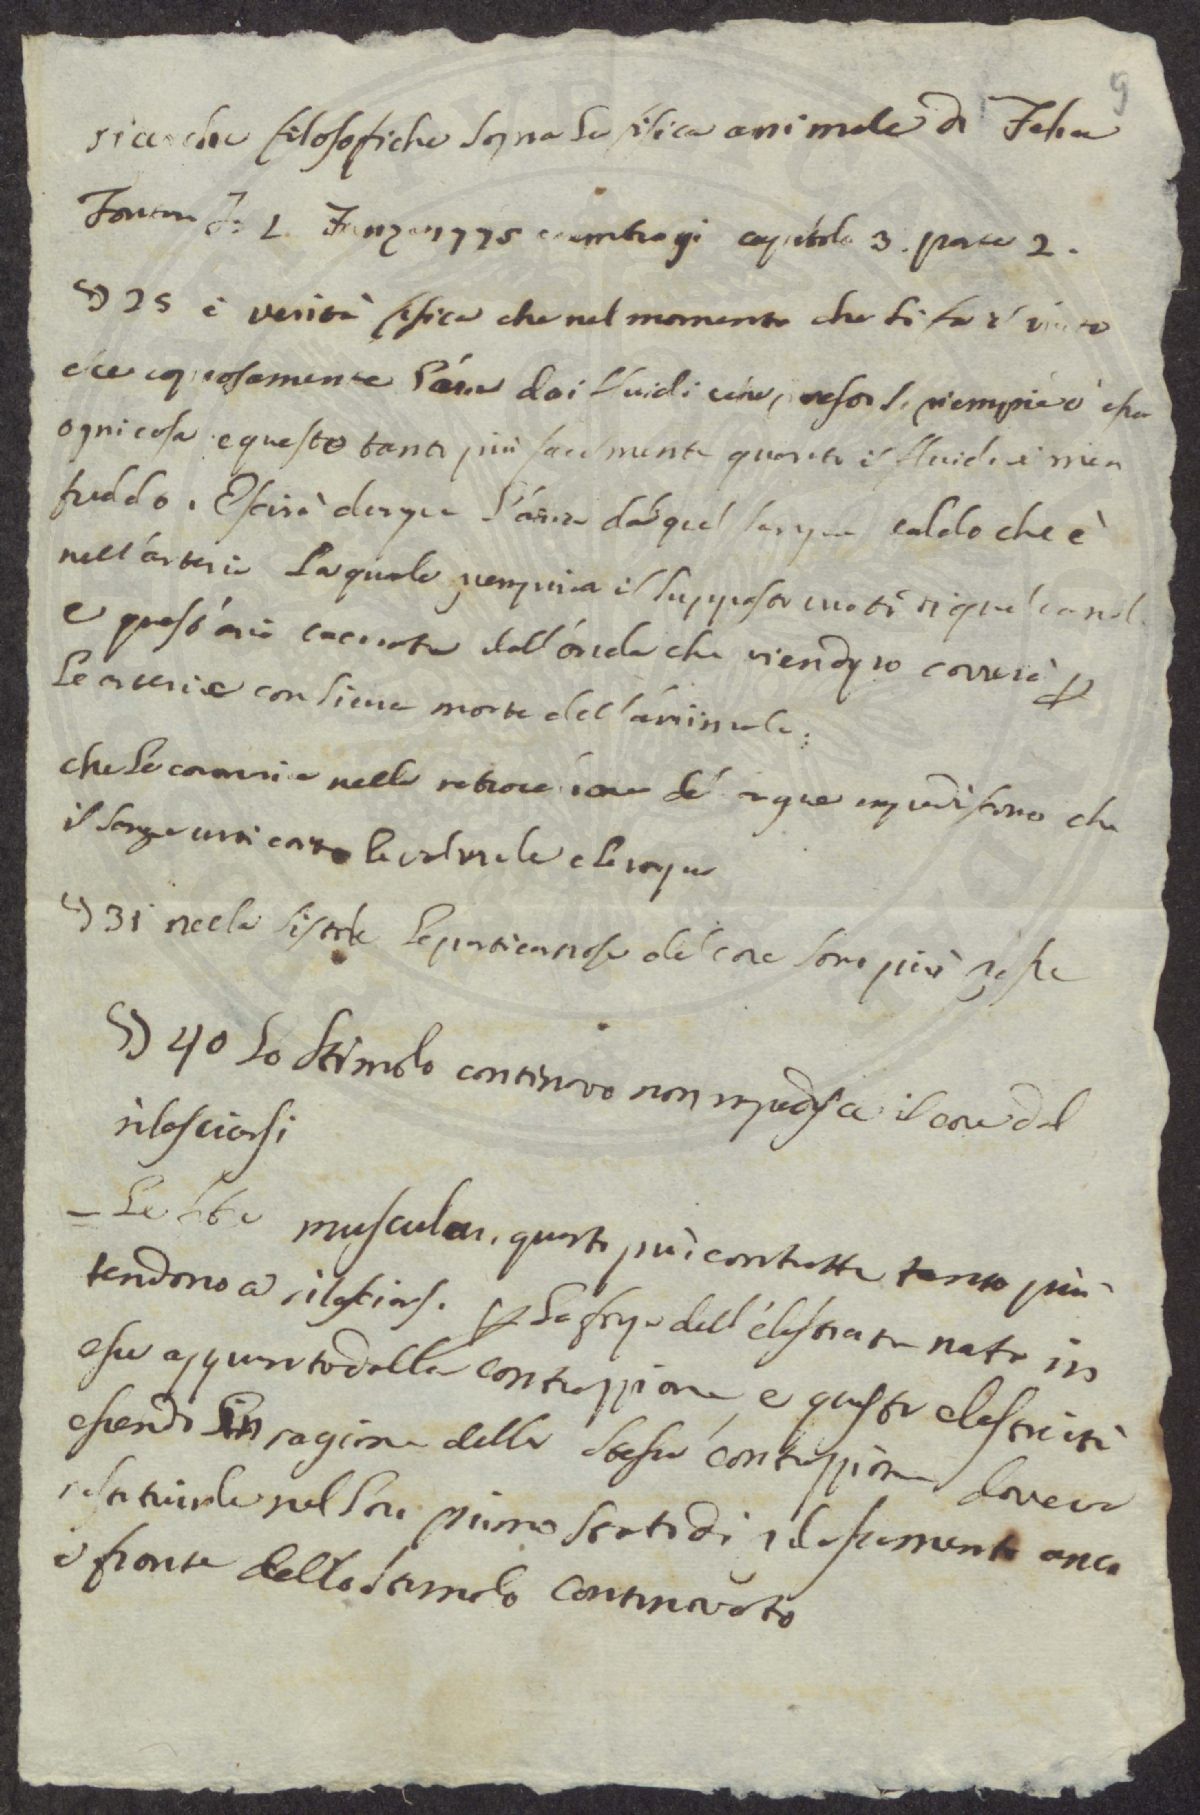 9
ricerche filosofiche sopra la fisica animale di Felice
Fontana Firenze 1775 capitolo 3. parte 2.
25 è verità fisica che nel momento che si fa il vuoto
esce copiosamente l'aria dai fluidi riempie essa
ogni cosa e questo tanto più facilmente quanto il fluido è men
freddo. Escirà dunque l'aria da quel sangue caldo che è
nell'arteria la quale riempirà il supposto vuoto di quel canale
e quest'aria cacciata dall'onda che vien dopo correrà p
le arterie con sicura morte dell'animale:
che le coronarie nelle impediscono che
il sangue urti contro le valvule e le
31 nella sistole le parti carnose del core sono più rosse
40 Lo stimolo continovo non impedisce il core dal
rilasciarsi
– Le fibre muscolari, quanto più contratte tanto più
tendono a rilasciarsi. p la forza dell'elasticità nata in
esse appunto dalla contrazzione e questa elasticità
essendo in ragione della stessa contrazzione doveva
restituirle nel loro primo stato di rilasciamento anco
a fronte dello stimolo continovato